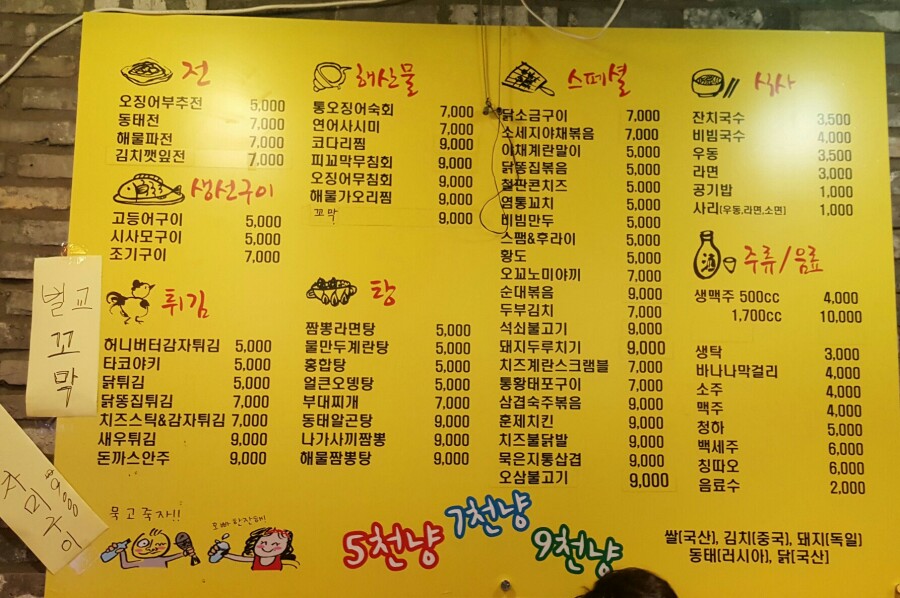 전
오징어부추전 5,000
동태전 7,000
해물파전 7,000
김치깻잎전 7,000
생선구이
고등어구이 5,000
시사모구이 5,000
조기구이 7,000
튀김
허니버터감자튀김 5,000
타코야키 5,000
닭튀김 5,000
닭똥집튀김 7,000
치즈스틱&감자튀김 7,000
새우튀김 9,000
돈까스안주 9,000
해산물
통오징어숙회 7,000
연어사시미 7,000
코다리찜 9,000
피꼬막무침회 9,000
오징어무침회 9,000
해물가오리찜 9,000
꼬막 9,000
탕
짬뽕라면탕 5,000
물만두계란탕 5,000
홍합탕 5,000
얼큰오뎅탕 5,000
부대찌개 7,000
동태알곤탕 9,000
나가사끼짬뽕 9,000
해물짬뽕탕 9,000
스페셜
닭소금구이 7,000
소세지야채볶음 7,000
야채계란말이 5,000
닭똥집볶음 5,000
철판콘치즈 5,000
염통꼬치 5,000
비빔만두 5,000
스팸&후라이 5,000
황도 5,000
오꼬노미야끼 7,000
순대볶음 9,000
두부김치 7,000
석쇠불고기 9,000
돼지두루치기 9,000
치즈계란스크램블 7,000
통황태포구이 7,000
삼겹숙주볶음 9,000
훈제치킨 9,000
치즈불닭발 9,000
묵은지통삼겹 9,000
오삼불고기 9,000
식사
잔치국수 3,500
비빔국수 4,000
우동 3,500
라면 3,000
공기밥 1,000
사리[우동,라면,소면] 1,000
酒
주류/음료
생맥주 500cc 4,000
1,700cc 10,000
생탁 3,000
바나나막걸리 4,000
소주 4,000
맥주 4,000
청하 5,000
백세주 6,000
칭따오 6,000
음료수 2,000
벌교
꼬
막
쭈미구이
9,000
묵고죽자!!
오빠 한잔해!
5천냥
7천냥
9천냥
쌀[국산], 김치(중국), 돼지[독일]
동태(러시아), 닭[국산]